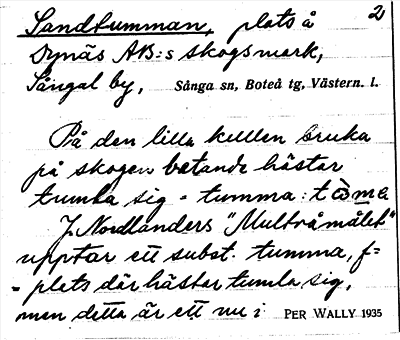 Sandtumman, plats å 2
Dynäs AB:s skogsmark,
Sångal by, Sånga sn, Boteå tg, Västern. l.
På den lilla kullen bruka
på skogen betande hästar
tumla sig - tumma:
J. Nordlanders "Multråmålet"
upptar ett subst. tumma, f=
= plats där hästar tumla sig,
men detta är ett nu i PER WALLY 1935